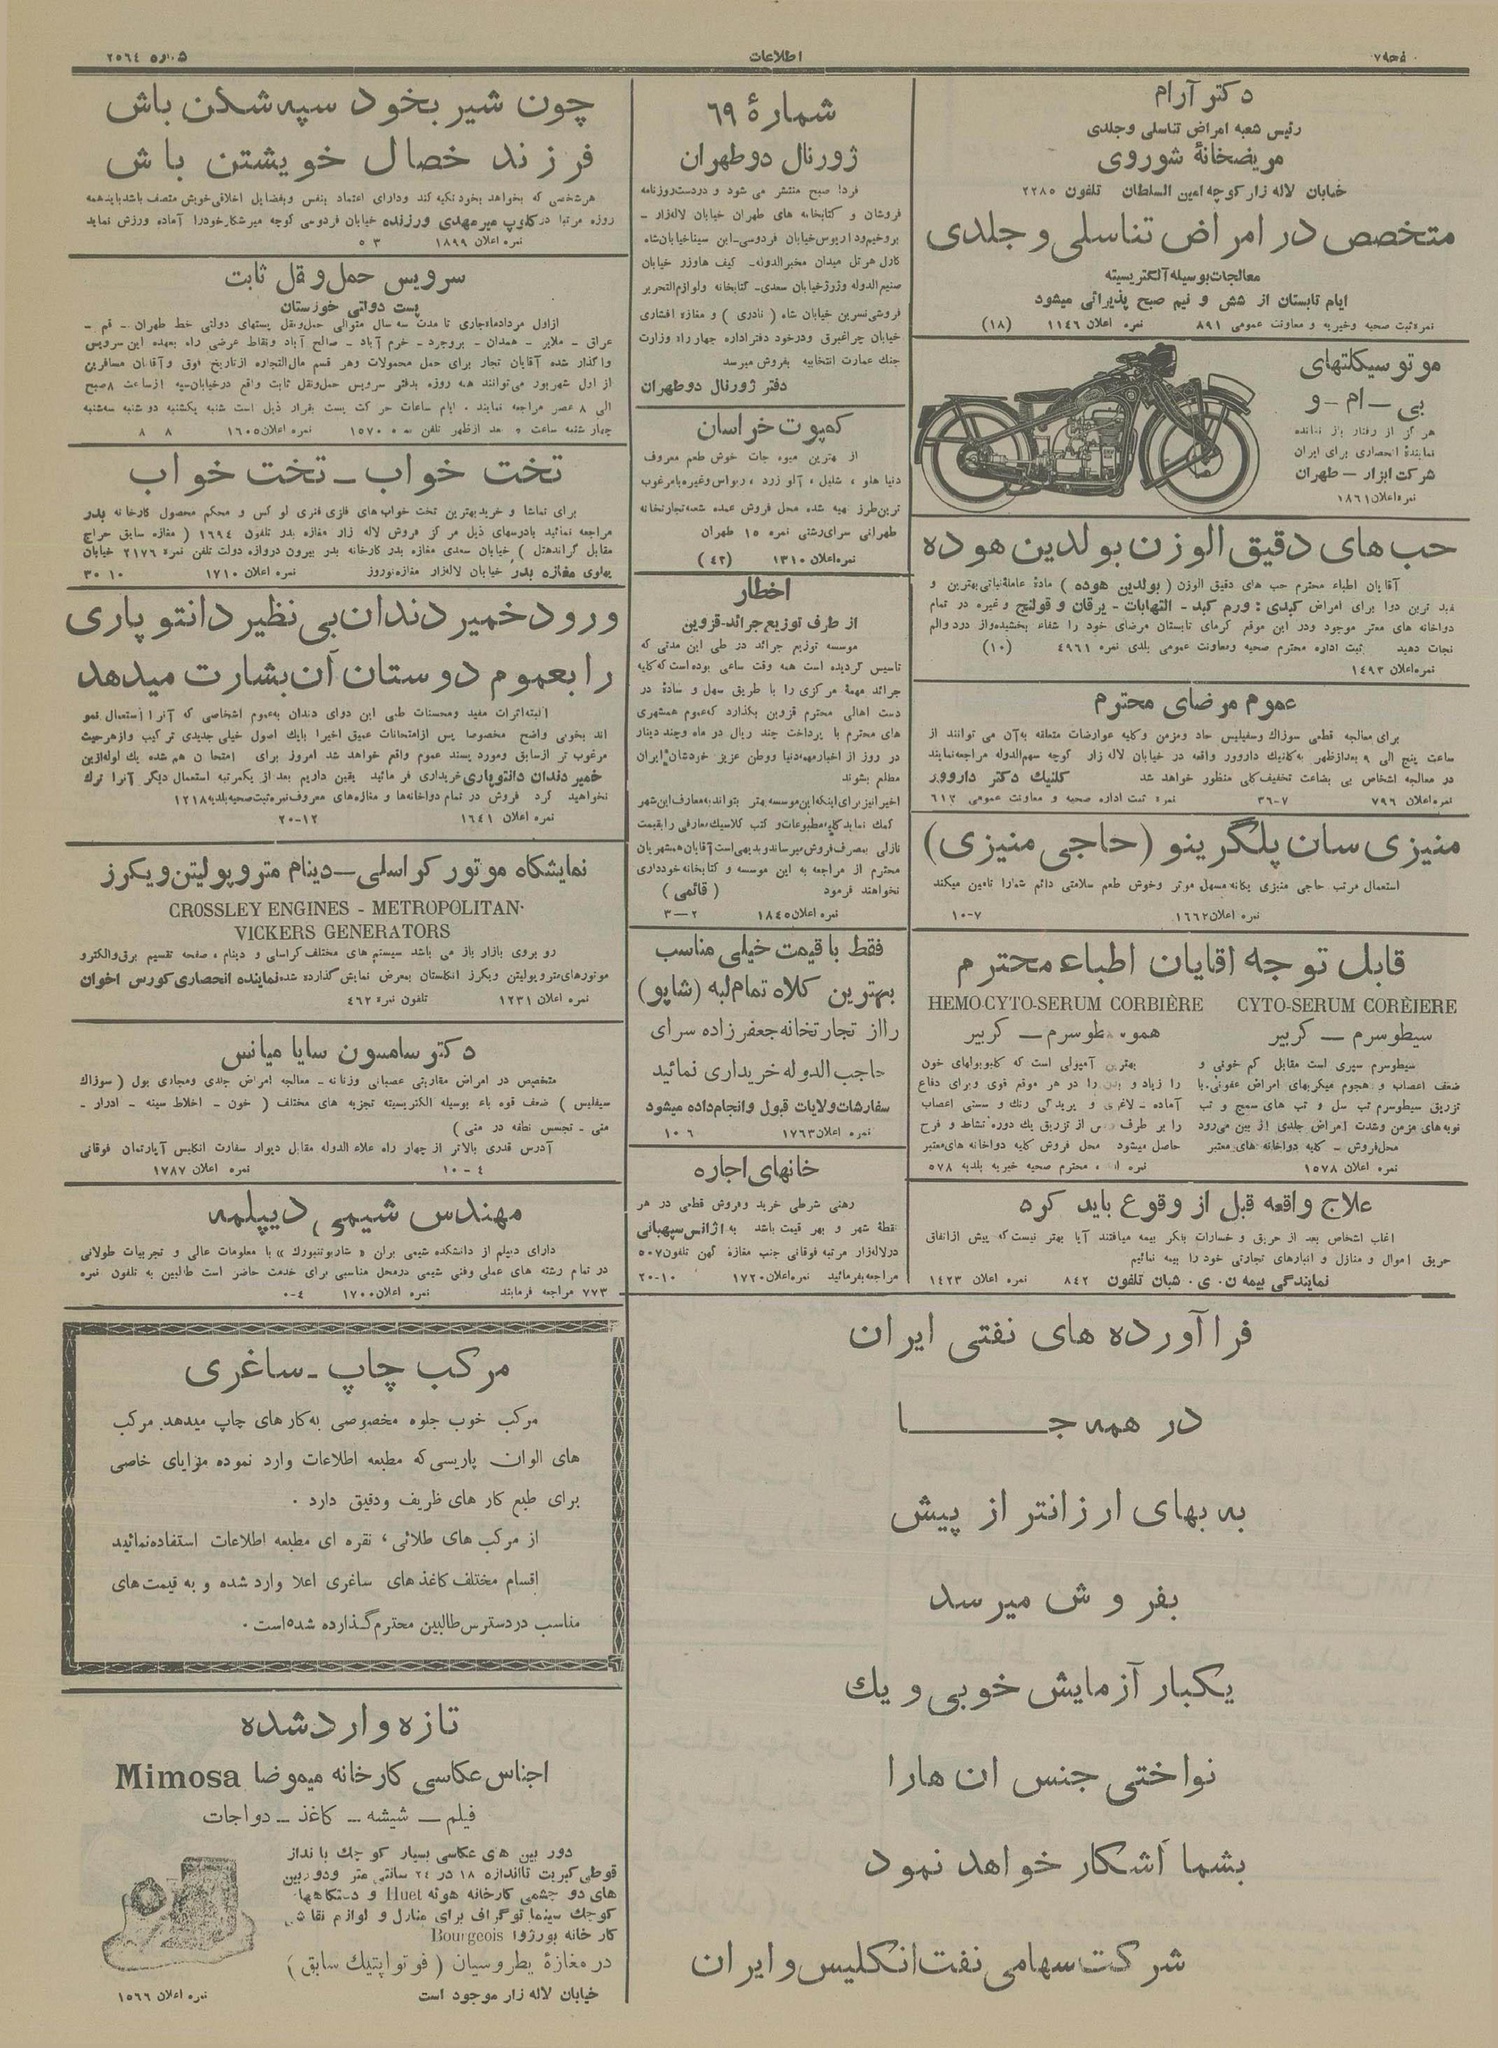 صفحه ۷
اطلاعات
شماره ۲۵۶۴
دکتر آرام
رئیس شعبه امراض تناسلی و جلدی
مریضخانهٔ شوروی
خیابان لاله زار کوچه امین السلطان تلفون ۲۲۸۵
متخصص در امراض تناسلی و جلدی
معالجات بوسیله آلکتریسیته
ایام تابستان از شش و نیم صبح پذیرائی میشود
نمره ثبت صحیه و خیریه و معاونت عمومی ۸۹۱ نمره اعلان ۱۱۴۶ (۱۸)
موتوسیکلتهای
بی – ام – و
هرگز از رفتار باز نمانده
نمایندهٔ انحصاری برای ایران
شرکت ابزار – طهران
نمره اعلان ۱۸۶۱
حب های دقیق الوزن بولدین هوده
آقایان اطباء محترم حب های دقیق الوزن ( بولدین هوده ) مادهٔ عامله نباتی بهترین و
مفید ترین دوا برای امراض کبدی : ورم کبد - التهابات - یرقان و قولنج وغیره در تمام
دواخانه های معتبر موجود ودر این موقع گرمای تابستان مرضای خود را شفاء بخشیده واز درد والم
نجات دهید ثبت اداره محترم صحیه ومعاونت عمومی بلدی نمره ۴۹۶۱ (۱۰)
نمره اعلان ۱۴۹۳
عموم مرضای محترم
برای معالجه قطعی سوزاک وسفیلیس حاد ومزمن وکلیه عوارضات متعلقه به آن می توانند از
ساعت پنج الی ۹ بعدازظهر به کلنیک داروور واقعه در خیابان لاله زار کوچه سهم الدوله مراجعه نمایند
در معالجه اشخاص بی بضاعت تخفیف کلی منظور خواهد شد کلنیک دکتر داروور
نمره اعلان ۷۹۶ ۷-۳۶ نمره ثبت اداره صحیه و معاونت عمومی ۶۱۲
منیزی سان پلگرینو (حاجی منیزی)
استعمال مرتب حاجی منیزی یگانه مسهل موثر وخوش طعم سلامتی دائم شمارا تامین میکند
نمره اعلان ۱۶۶۲ ۷-۱۰
قابل توجه اقایان اطباء محترم
HEMO-CYTO-SERUM CORBIÈRE CYTO-SERUM CORÈIERE
سیطوسرم – کربیر
سیطوسرم سپری است مقابل کم خونی و
ضعف اعصاب و هجوم میکربهای امراض عفونی. با
تزریق سیطوسرم تب سل و تب های سمج و تب
نوبه های مزمن وشدت امراض جلدی از بین می رود
محل فروش - کلیه دواخانه های معتبر
نمره اعلان ۱۵۷۸
هموسیطوسرم – کربیر
بهترین آمپولی است که گلبولهای خون
را زیاد و بدن را در هر موقع قوی وبرای دفاع
آماده - لاغری و پریدگی رنگ و سستی اعصاب
را بر طرف پس از تزریق یک دوره نشاط و فرح
حاصل میشود محل فروش کلیه دواخانه های معتبر
محترم صحیه خیریه بلدیه ۵۷۸
علاج واقعه قبل از وقوع باید کرد
اغلب اشخاص بعد از حریق و خسارات بفکر بیمه میافتند آیا بهتر نیست که پیش از اتفاق
حریق اموال و منازل و انبارهای تجارتی خود را بیمه نمائیم
نمایندگی بیمه ن . ی . شبان تلفون ۸۴۲ نمره اعلان ۱۴۲۳
شمارهٔ ۶۹
ژورنال دوطهران
فردا صبح منتشر می شود و دردست روزنامه
فروشان و کتابخانه های طهران خیابان لاله زار -
بروخیم وداریوس خیابان فردوسی - ابن سینا خیابان شاه
کارل هرتل میدان مخبرالدوله - کیف هاوزر خیابان
صنیع الدوله وژرژ خیابان سعدی - کتابخانه ولوازم التحریر
فروشی نسرین خیابان شاه ( نادری ) و مغازه افشاری
خیابان چراغبرق ودرخود دفتر اداره چهار راه وزارت
جنگ عمارت انتخابیه بفروش میرسد
دفتر ژورنال دوطهران
کمپوت خراسان
از بهترین میوه جات خوش طعم معروف
دنیا هلو ، شلیل ، آلو زرد ، ریواس وغیره بامرغوب
ترین طرز تهیه شده محل فروش عمده شعبه تجارتخانه
طهرانی سرای رشتی نمره ۱۵ طهران
نمره اعلان ۱۳۱۰ (۴۲)
اخطار
از طرف توزیع جرائد - قزوین
موسسه توزیع جرائد در طی این مدتی که
تاسیس گردیده است همه وقت ساعی بوده است که کلیه
جرائد مهمهٔ مرکزی را با طریق سهل و سادهٔ در
دست اهالی محترم قزوین بگذارد که عموم همشهری
های محترم با پرداخت چند ریال در ماه وچند دینار
در روز از اخبار مهمه دنیا ووطن عزیز خودشان ایران
مطلع بشوند
اخیرا نیز برای اینکه این موسسه بهتر بتواند به معارف این شهر
کمک نماید کلیه مطبوعات و کتب کلاسیک معارفی را بقیمت
نازلی بمصرف فروش میرساند و بدیهی است آقایان همشهریان
محترم از مراجعه به این موسسه و کتابخانه خودداری
نخواهند فرمود ( قائمی )
نمره اعلان ۱۸۴۵ ۲–۳
فقط با قیمت خیلی مناسب
بهترین کلاه تمام لبه (شاپو)
را از تجارتخانه جعفرزاده سرای
حاجب الدوله خریداری نمائید
سفارشات ولایات قبول وانجام داده میشود
نمره اعلان ۱۷۶۳ ۶ ۱۰
خانهای اجاره
رهنی شرطی خرید وفروش قطعی در هر
نقطهٔ شهر و بهر قیمت باشد به آژانس سپهبانی
در لاله زار مرتبه فوقانی جنب مغازهٔ کهن تلفون ۵۰۷
مراجعه بفرمائید نمره اعلان ۱۷۲۰ ۱۰-۲۰
چون شیر بخود سپه شکن باش
فرزند خصال خویشتن باش
هرشخصی که بخواهد بخود تکیه کند ودارای اعتماد بنفس وبفضایل اخلاقی خویش متصف باشد باید همه
روزه مرتبا در کلوپ میر مهدی ورزنده خیابان فردوسی کوچه میرشکار خودرا آماده ورزش نماید
نمره اعلان ۱۸۹۹ ۳ ۵
سرویس حمل و نقل ثابت
پست دولتی خوزستان
ازاول مردادماه جاری تا مدت سه سال متوالی حمل ونقل پستهای دولتی خط طهران - قم -
عراق - ملایر - همدان - بروجرد - خرم آباد - صالح آباد ونقاط عرضی راه بعهده این سرویس
واگذار شده آقایان تجار برای حمل محمولات وهر قسم مال التجاره ازتاریخ فوق وآقایان مسافرین
از اول شهریور می توانند همه روزه بدفتر سرویس حمل ونقل ثابت واقع درخیابان سپه ازساعت ۸ صبح
الی ۸ عصر مراجعه نمایند . ایام ساعات حرکت پست بقرار ذیل است شنبه یکشنبه دوشنبه سه شنبه
چهارشنبه ساعت بعد ازظهر تلفن نمره ۱۵۷۰ نمره اعلان ۱۶۰۵ ۸ ۸
تخت خواب - تخت خواب
برای تماشا و خرید بهترین تخت خواب های فلزی فنری لوکس و محکم محصول کارخانه بدر
مراجعه نمائید بادرسهای ذیل مرکز فروش لاله زار مغازه بدر تلفون ۱۶۹۴ ( مغازه سابق حراج
مقابل گراندهتل ) خیابان سعدی مغازه بدر کارخانه بدر بیرون دروازه دولت تلفن نمره ۲۱۷۶ خیابان
پهلوی مغازه بدر خیابان لاله زار مغازه نوروز نمره اعلان ۱۷۱۰ ۱۰ ۳۰
ورود خمیر دندان بی نظیر دانتوپاری
را بعموم دوستان آن بشارت میدهد
البته اثرات مفید ومحسنات طبی این دوای دندان به عموم اشخاصی که آنرا استعمال نمو
اند بخوبی واضح مخصوصا پس ازامتحانات عمیق اخیرا بایک اصول خیلی جدیدی ترکیب وازهرحیث
مرغوب تر ازسابق ومورد پسند عموم واقع خواهد شد امروز برای امتحان هم شده یک لوله ازین
خمیر دندان دانتوپاری خریداری فرمائید یقین داریم بعد از یکمرتبه استعمال دیگر آنرا ترک
نخواهید کرد فروش در تمام دواخانه ها و مغازه های معروف نمره ثبت صحیه بلدیه ۱۲۱۸
نمره اعلان ۱۶۴۱ ۱۲-۲۰
نمایشگاه موتور کراسلی – دینام متروپولیتن ویکرز
CROSSLEY ENGINES - METROPOLITAN-
VICKERS GENERATORS
رو بروی بازار باز می باشد سیستم های مختلف کراسلی و دینام ، صفحه تقسیم برق والکترو
موتورهای متروپولیتن ویکرز انگلستان بمعرض نمایش گذارده شده نماینده انحصاری کورس اخوان
نمره اعلان ۱۲۳۱ تلفون نمره ۴۶۲
دکتر سامسون سایا میانس
متخصص در امراض مقاربتی عصبانی وزنانه - معالجه امراض جلدی ومجاری بول ( سوزاک
سیفلیس ) ضعف قوه باء بوسیله الکتریسیته تجزیه های مختلف ( خون - اخلاط سینه - ادرار -
منی - تجسس نطفه در منی )
آدرس قدری بالاتر از چهار راه علاء الدوله مقابل دیوار سفارت انگلیس آپارتمان فوقانی
۴ - ۱۰ نمره اعلان ۱۷۸۷
مهندس شیمی دیپلمه
دارای دیپلم از دانشکده شیمی برلن « شارلوتنبورک » با معلومات عالی و تجربیات طولانی
در تمام رشته های عملی وفنی شیمی درمحل مناسبی برای خدمت حاضر است طالبین به تلفون نمره
۷۷۳ مراجعه فرمایند نمره اعلان ۱۷۰۰ ۴-۰
مرکب چاپ - ساغری
مرکب خوب جلوه مخصوصی به کارهای چاپ میدهد. مرکب
های الوان پاریسی که مطبعه اطلاعات وارد نموده مزایای خاصی
برای طبع کار های ظریف ودقیق دارد .
از مرکب های طلائی ، نقره ای مطبعه اطلاعات استفاده نمائید
اقسام مختلف کاغذهای ساغری اعلا وارد شده و به قیمت های
مناسب دردسترس طالبین محترم گذارده شده است .
تازه وارد شده
اجناس عکاسی کارخانه میموضا Mimosa
فیلم – شیشه – کاغذ – دواجات
دور بین های عکاسی بسیار کوچک با نداز
قوطی کبریت تااندازه ۱۸ در ۲۴ سانتی متر ودوربین
های دو چشمی کارخانه هوئه Huet و دستگاهها
کوچک سینما توگراف برای منازل و لوازم نقاشی
کارخانه بورژوا Bourgeois
در مغازهٔ پطروسیان ( فوتو اپتیک سابق )
خیابان لاله زار موجود است نمره اعلان ۱۵۶۶
فرا آورده های نفتی ایران
در همه جا
به بهای ارزانتر از پیش
بفروش میرسد
یکبار آزمایش خوبی و یک
نواختی جنس ان هارا
بشما آشکار خواهد نمود
شرکت سهامی نفت انگلیس و ایران